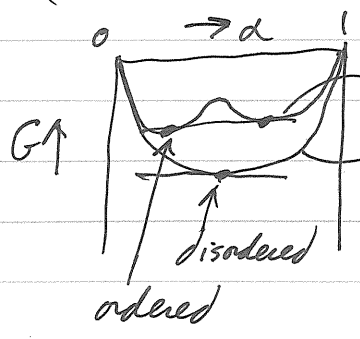 0 → α 1
G↑
disordered
ordered